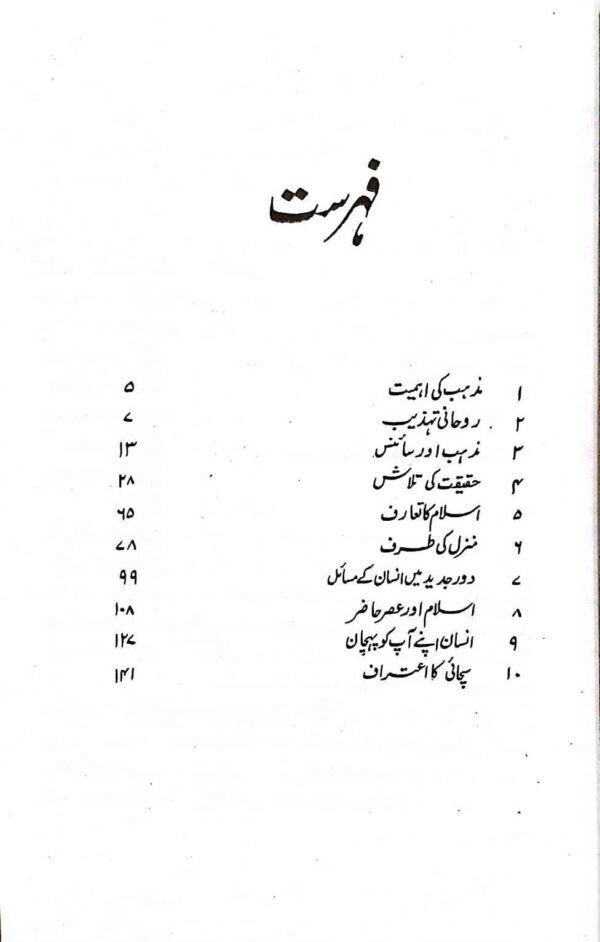 فہرست
۱ مذہب کی اہمیت ۵
۲ روحانی تہذیب ۷
۳ مذہب اور سائنس ۱۳
۴ حقیقت کی تلاش ۲۸
۵ اسلام کا تعارف ۶۵
۶ منزل کی طرف ۷۸
۷ دور جدید میں انسان کے مسائل ۹۹
۸ اسلام اور عصر حاضر ۱۰۸
۹ انسان اپنے آپ کو پہچان ۱۲۷
۱۰ سچائی کا اعتراف ۱۴۱